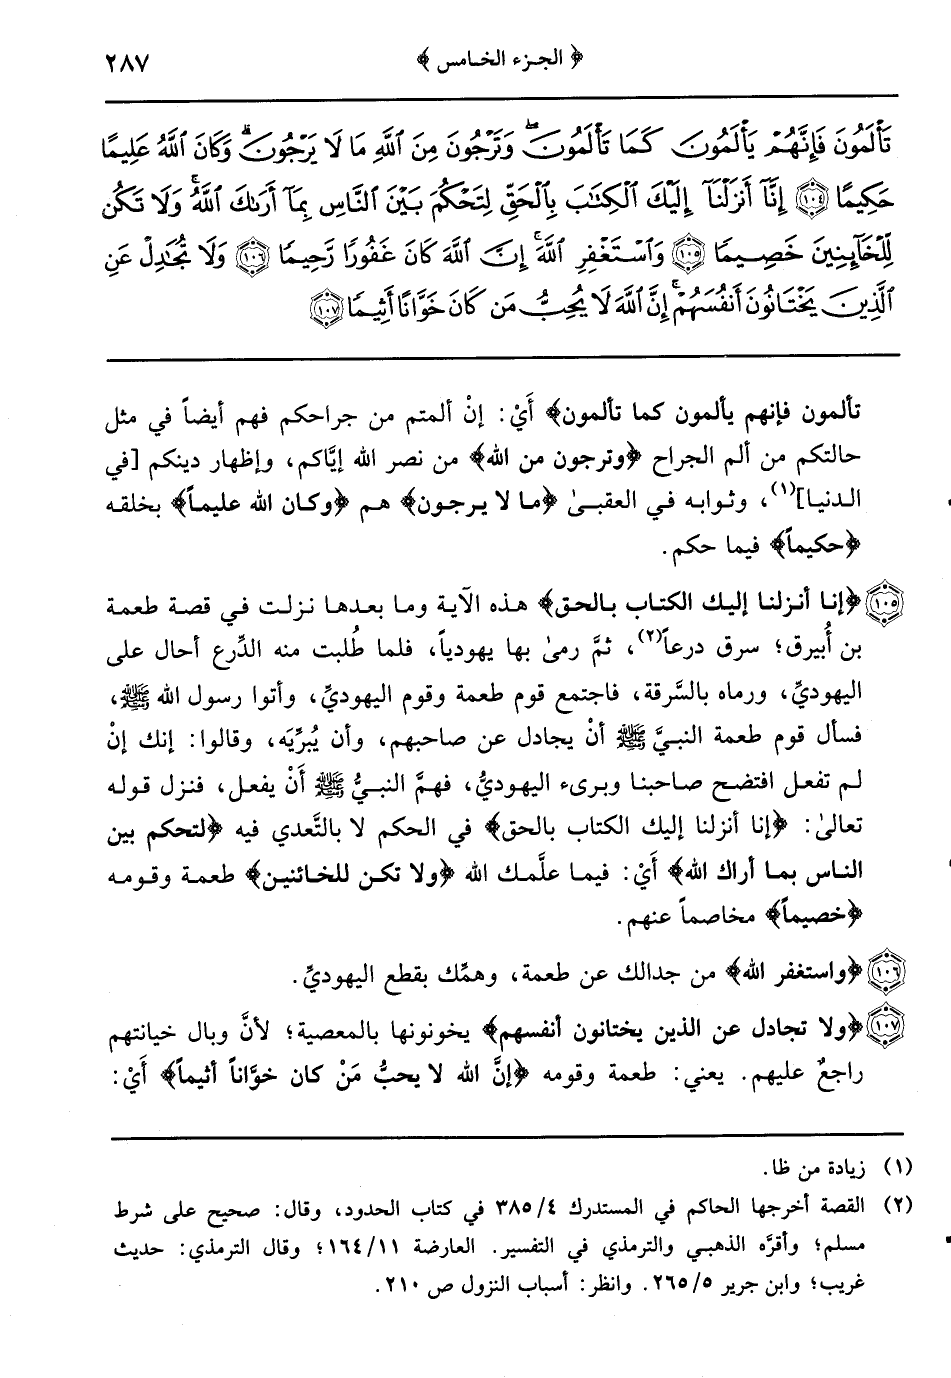 ﴿ الجزء الخامس ﴾ ٢٨٧
تَأْلَمُونَ فَإِنَّهُمْ يَأْلَمُونَ كَمَا تَأْلَمُونَ ۖ وَتَرْجُونَ مِنَ ٱللَّهِ مَا لَا يَرْجُونَ ۗ وَكَانَ ٱللَّهُ عَلِيمًا
حَكِيمًا ١٠٤ إِنَّآ أَنزَلْنَآ إِلَيْكَ ٱلْكِتَٰبَ بِٱلْحَقِّ لِتَحْكُمَ بَيْنَ ٱلنَّاسِ بِمَآ أَرَىٰكَ ٱللَّهُ ۚ وَلَا تَكُن
لِّلْخَآئِنِينَ خَصِيمًا ١٠٥ وَٱسْتَغْفِرِ ٱللَّهَ ۖ إِنَّ ٱللَّهَ كَانَ غَفُورًا رَّحِيمًا ١٠٦ وَلَا تُجَٰدِلْ عَنِ
ٱلَّذِينَ يَخْتَانُونَ أَنفُسَهُمْ ۚ إِنَّ ٱللَّهَ لَا يُحِبُّ مَن كَانَ خَوَّانًا أَثِيمًا ١٠٧
تألمون فإنهم يألمون كما تألمون﴾ أَيْ: إنْ ألمتم من جراحكم فهم أيضاً في مثل
حالتكم من ألم الجراح ﴿وترجون من الله﴾ من نصر الله إيَّاكم، وإظهار دينكم [في
الدنيا](١)، وثوابه في العقبىٰ ﴿ما لا يرجون﴾ هم ﴿وكان الله عليماً﴾ بخلقه
﴿حكيماً﴾ فيما حكم.
١٠٥ ﴿إنا أنزلنا إليك الكتاب بالحق﴾ هذه الآية وما بعدها نزلت في قصة طعمة
بن أُبيرق؛ سرق درعاً(٢)، ثمَّ رمىٰ بها يهودياً، فلما طُلبت منه الدِّرع أحال على
اليهوديِّ، ورماه بالسَّرقة، فاجتمع قوم طعمة وقوم اليهوديِّ، وأتوا رسول الله ﷺ،
فسأل قوم طعمة النبيَّ ﷺ أنْ يجادل عن صاحبهم، وأن يُبرِّيَه، وقالوا: إنك إنْ
لم تفعل افتضح صاحبنا وبرىء اليهوديُّ، فهمَّ النبيُّ ﷺ أَنْ يفعل، فنزل قوله
تعالىٰ: ﴿إنا أنزلنا إليك الكتاب بالحق﴾ في الحكم لا بالتَّعدي فيه ﴿لتحكم بين
الناس بما أراك الله﴾ أَيْ: فيما علَّمك الله ﴿ولا تكن للخائنين﴾ طعمة وقومه
﴿خصيماً﴾ مخاصماً عنهم.
١٠٦ ﴿واستغفر الله﴾ من جدالك عن طعمة، وهمِّك بقطع اليهوديِّ.
١٠٧ ﴿ولا تجادل عن الذين يختانون أنفسهم﴾ يخونونها بالمعصية؛ لأنَّ وبال خيانتهم
راجعٌ عليهم. يعني: طعمة وقومه ﴿إنَّ الله لا يحبُّ مَنْ كان خوَّاناً أثيماً﴾ أَيْ:
(١) زيادة من ظا.
(٢) القصة أخرجها الحاكم في المستدرك ٣٨٥/٤ في كتاب الحدود، وقال: صحيح على شرط
مسلم؛ وأقرَّه الذهبي والترمذي في التفسير. العارضة ١٦٤/١١؛ وقال الترمذي: حديث
غريب؛ وابن جرير ٢٦٥/٥. وانظر: أسباب النزول ص ٢١٠.